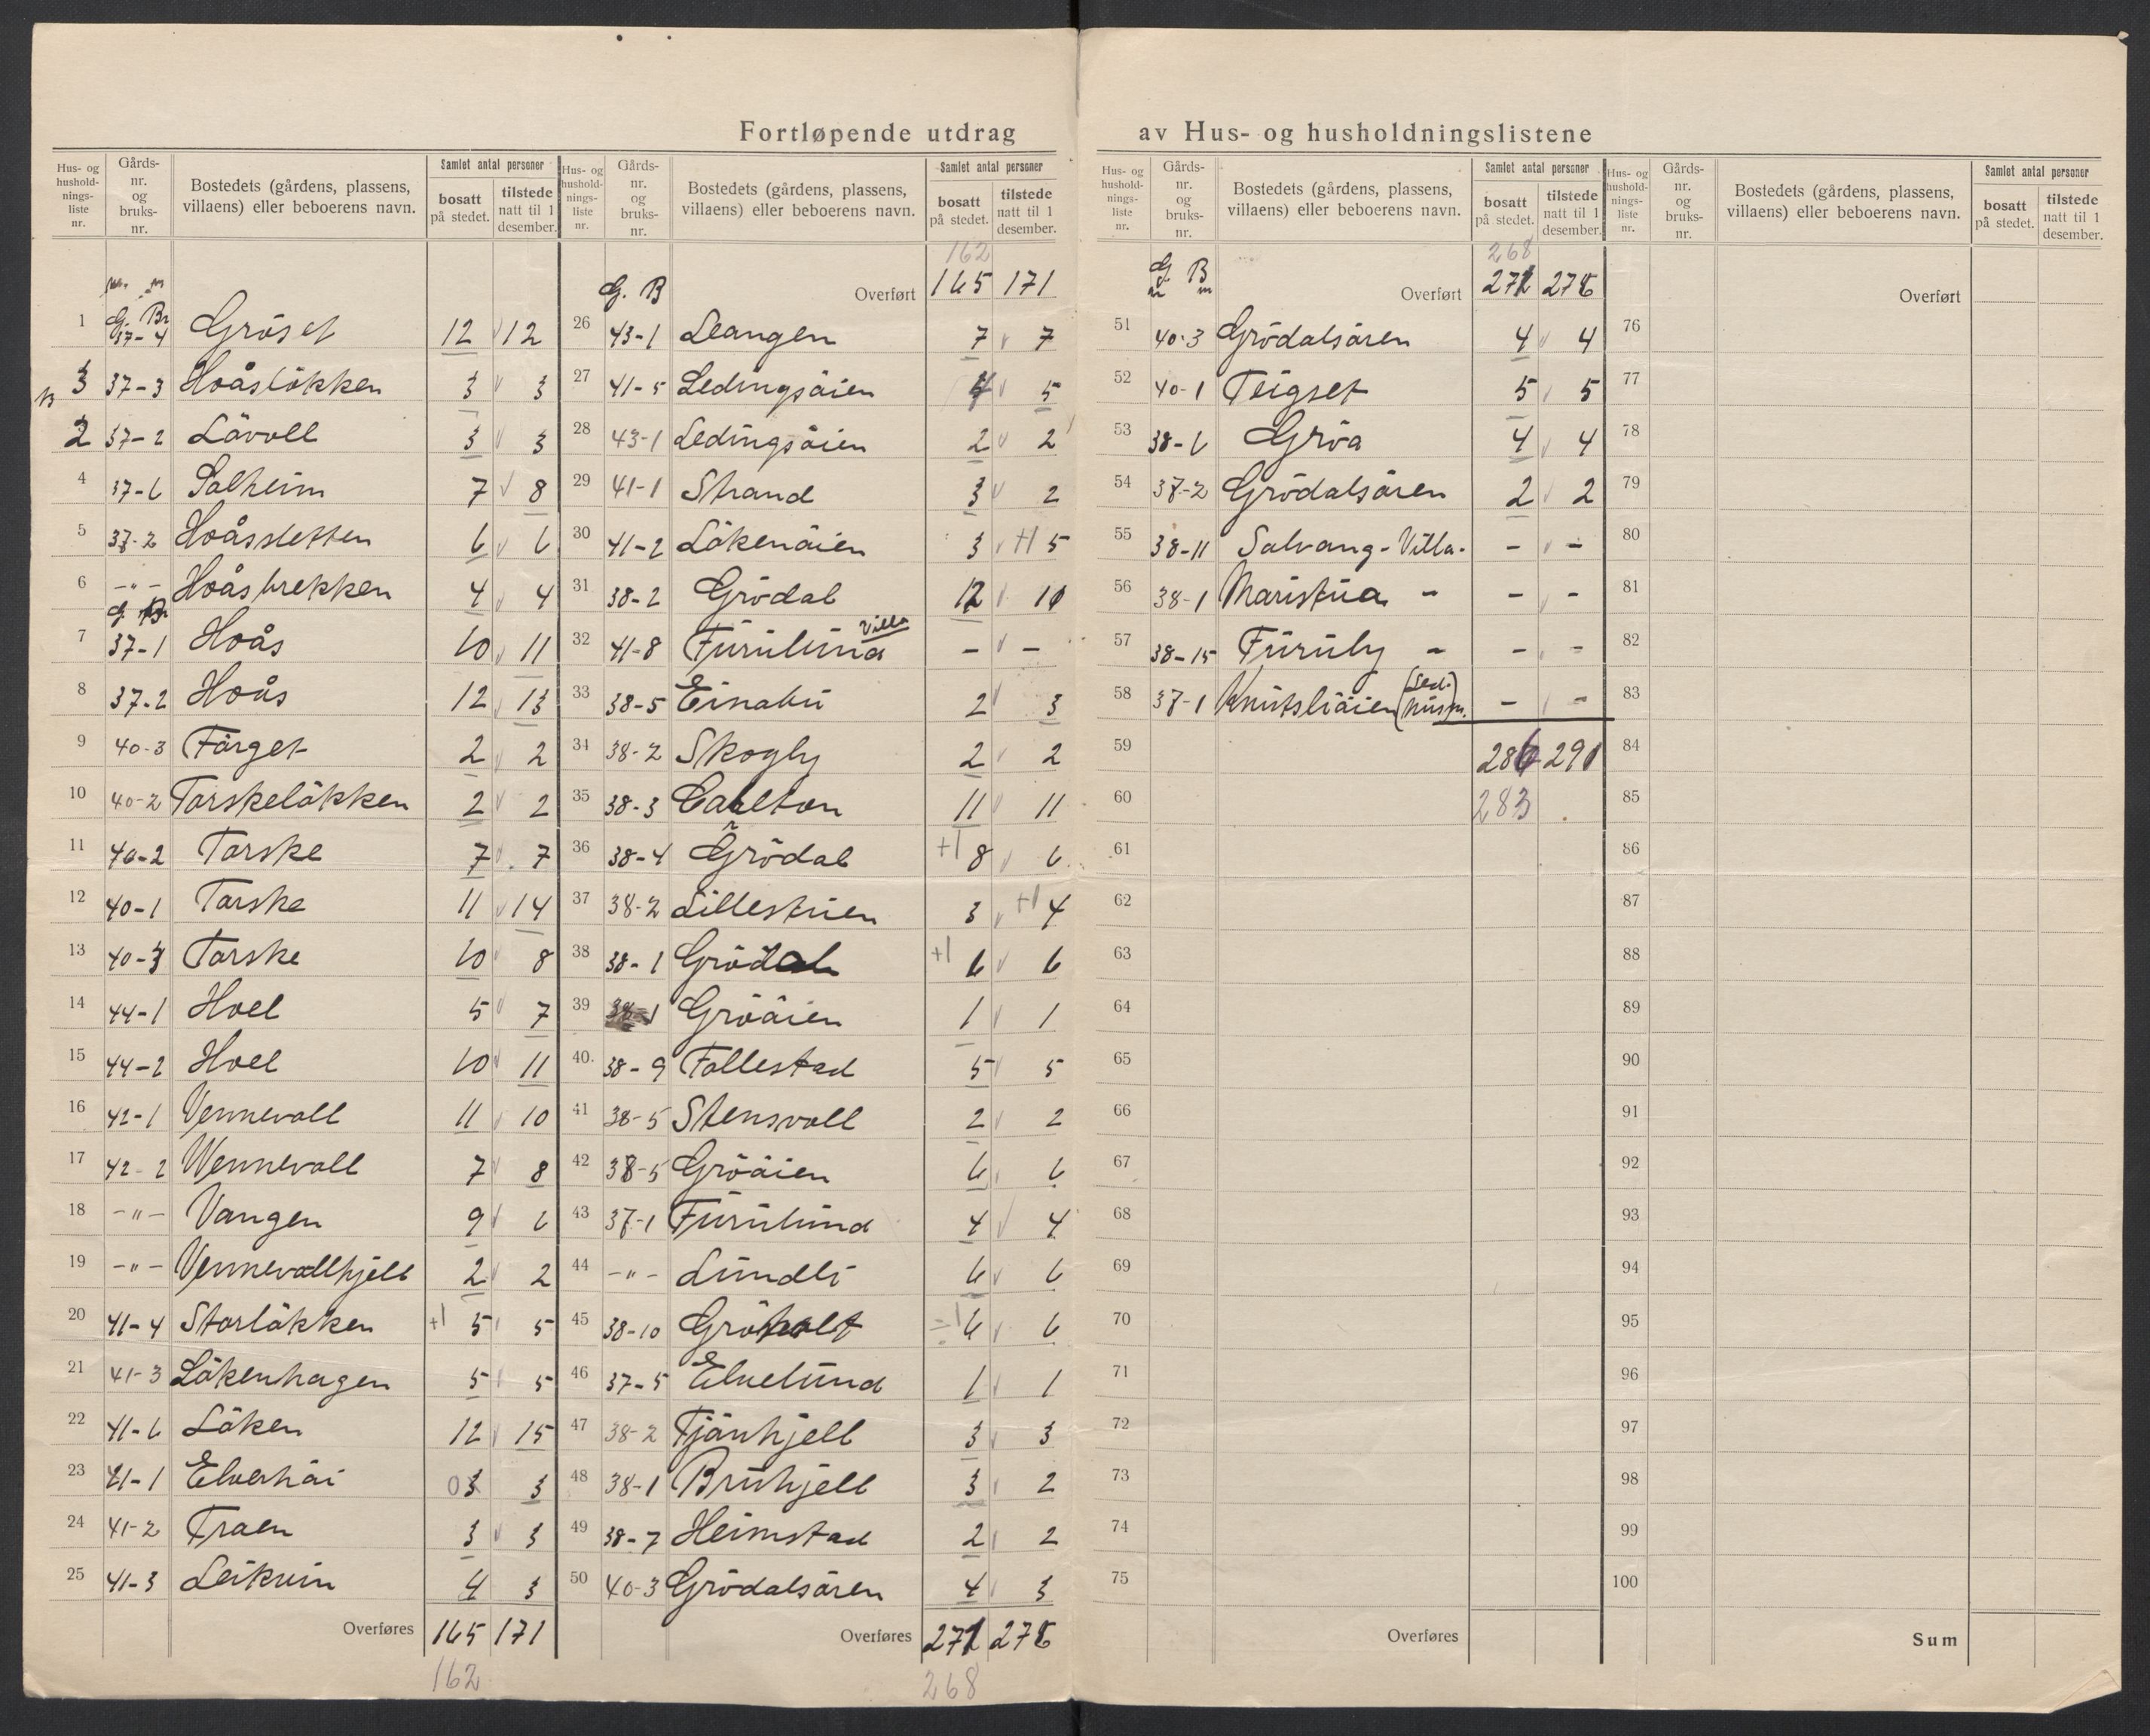 Fortløpende utdrag av Hus- og husholdningslistene
Hus- og hushold-nings-liste nr. Gårds-nr. og bruks-nr. Bostedets (gårdens, plassens, villaens) eller beboerens navn. Samlet antal personer bosatt på stedet. tilstede natt til 1 desember.
G. Br
1 37-4 Gröset 12 12
3 37-3 Hoåslökken 3 3
2 37-2 Lävoll 3 3
4 37-6 Solheim 7 8
5 37-2 Hoåssletten 6 6
6 -"- Hoåsbrekken 4 4
G. Br.
7 37-1 Hoås 10 11
8 37-2 Hoås 12 13
9 40-3 Färget 2 2
10 40-2 Torskelökken 2 2
11 40-2 Torske 7 7
12 40-1 Torske 11 14
13 40-3 Torske 10 8
14 44-1 Hoel 5 7
15 44-2 Hoel 10 11
16 42-1 Vennevoll 11 10
17 42-2 Wennevoll 7 8
18 -"- Vangen 9 6
19 -"- Vennevollhjell 2 2
20 41-4 Storlökken +1 5 5
21 41-3 Lökenhagen 5 5
22 41-6 Löken 12 15
23 41-1 Elverhöi 03 3
24 41-2 Traen 3 3
25 41-3 Leikvin 4 3
Overføres 165 171
162
Hus- og hushold-nings-liste nr. Gårds-nr. og bruks-nr. Bostedets (gårdens, plassens, villaens) eller beboerens navn. Samlet antal personer bosatt på stedet. tilstede natt til 1 desember.
162
G. B Overført 165 171
26 43-1 Leangen 7 7
27 41-5 Ledingsöien 4 5
28 43-1 Ledingsöien 2 2
29 41-1 Strand 3 2
30 41-2 Lökenöien 3 +1 5
31 38-2 Grödal 12 10
32 41-8 Furulund Villa - -
33 38-5 Einabu 2 3
34 38-2 Skogly 2 2
35 38-3 Carlton 11 11
36 38-4 Grödal +1 8 6
37 38-2 Lillestuen 3 +1 4
38 38-1 Grödal +1 6 6
39 38-1 Gröäien 1 1
40. 38-9 Follestad 5 5
41 38-5 Stensvoll 2 2
42 38-5 Gröäien 6 6
43 37-1 Furulund 4 4
44 -"- Lundli 6 6
45 38-10 Gröholt -1 6 6
46 37-5 Elvelund 1 1
47 38-2 Tjönhjell 3 3
48 38-1 Bruhjell 3 2
49 38-7 Heimstad 2 2
50 40-3 Grödalsören 4 3
Overføres 271 276
268
Hus- og hushold-nings-liste nr. Gårds-nr. og bruks-nr. Bostedets (gårdens, plassens, villaens) eller beboerens navn. Samlet antal personer bosatt på stedet. tilstede natt til 1 desember.
268
G. B Overført 271 276
51 40-3 Grödalsören 4 4
52 40-1 Teigset 5 5
53 38-6 Gröa 4 4
54 37-2 Grödalsören 2 2
55 38-11 Solvang - Villa - - -
56 38-1 Maristua - - -
57 38-15 Furuly - - -
58 37-1 Knutsliöien - -
59 286 291
60 283
61
62
63
64
65
66
67
68
69
70
71
72
73
74
75
Overføres
Hus- og hushold-nings-liste nr. Gårds-nr. og bruks-nr. Bostedets (gårdens, plassens, villaens) eller beboerens navn. Samlet antal personer bosatt på stedet. tilstede natt til 1 desember.
Overført
76
77
78
79
80
81
82
83
84
85
86
87
88
89
90
91
92
93
94
95
96
97
98
99
100
Sum